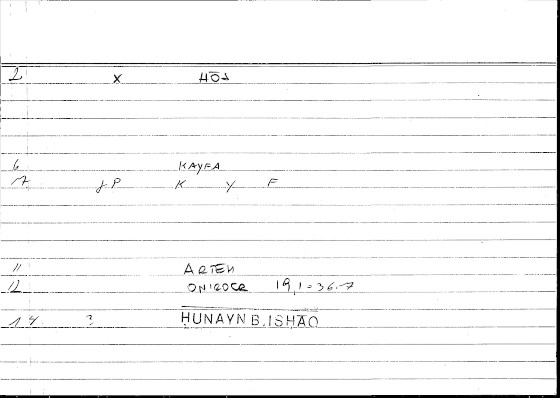 2 x HŌS
6 KAYFA
7 JP K Y F
11 ARTEM
12 ONIROCR 19,1=36.7
14 ? ḤUNAYN B. ISḤĀQ